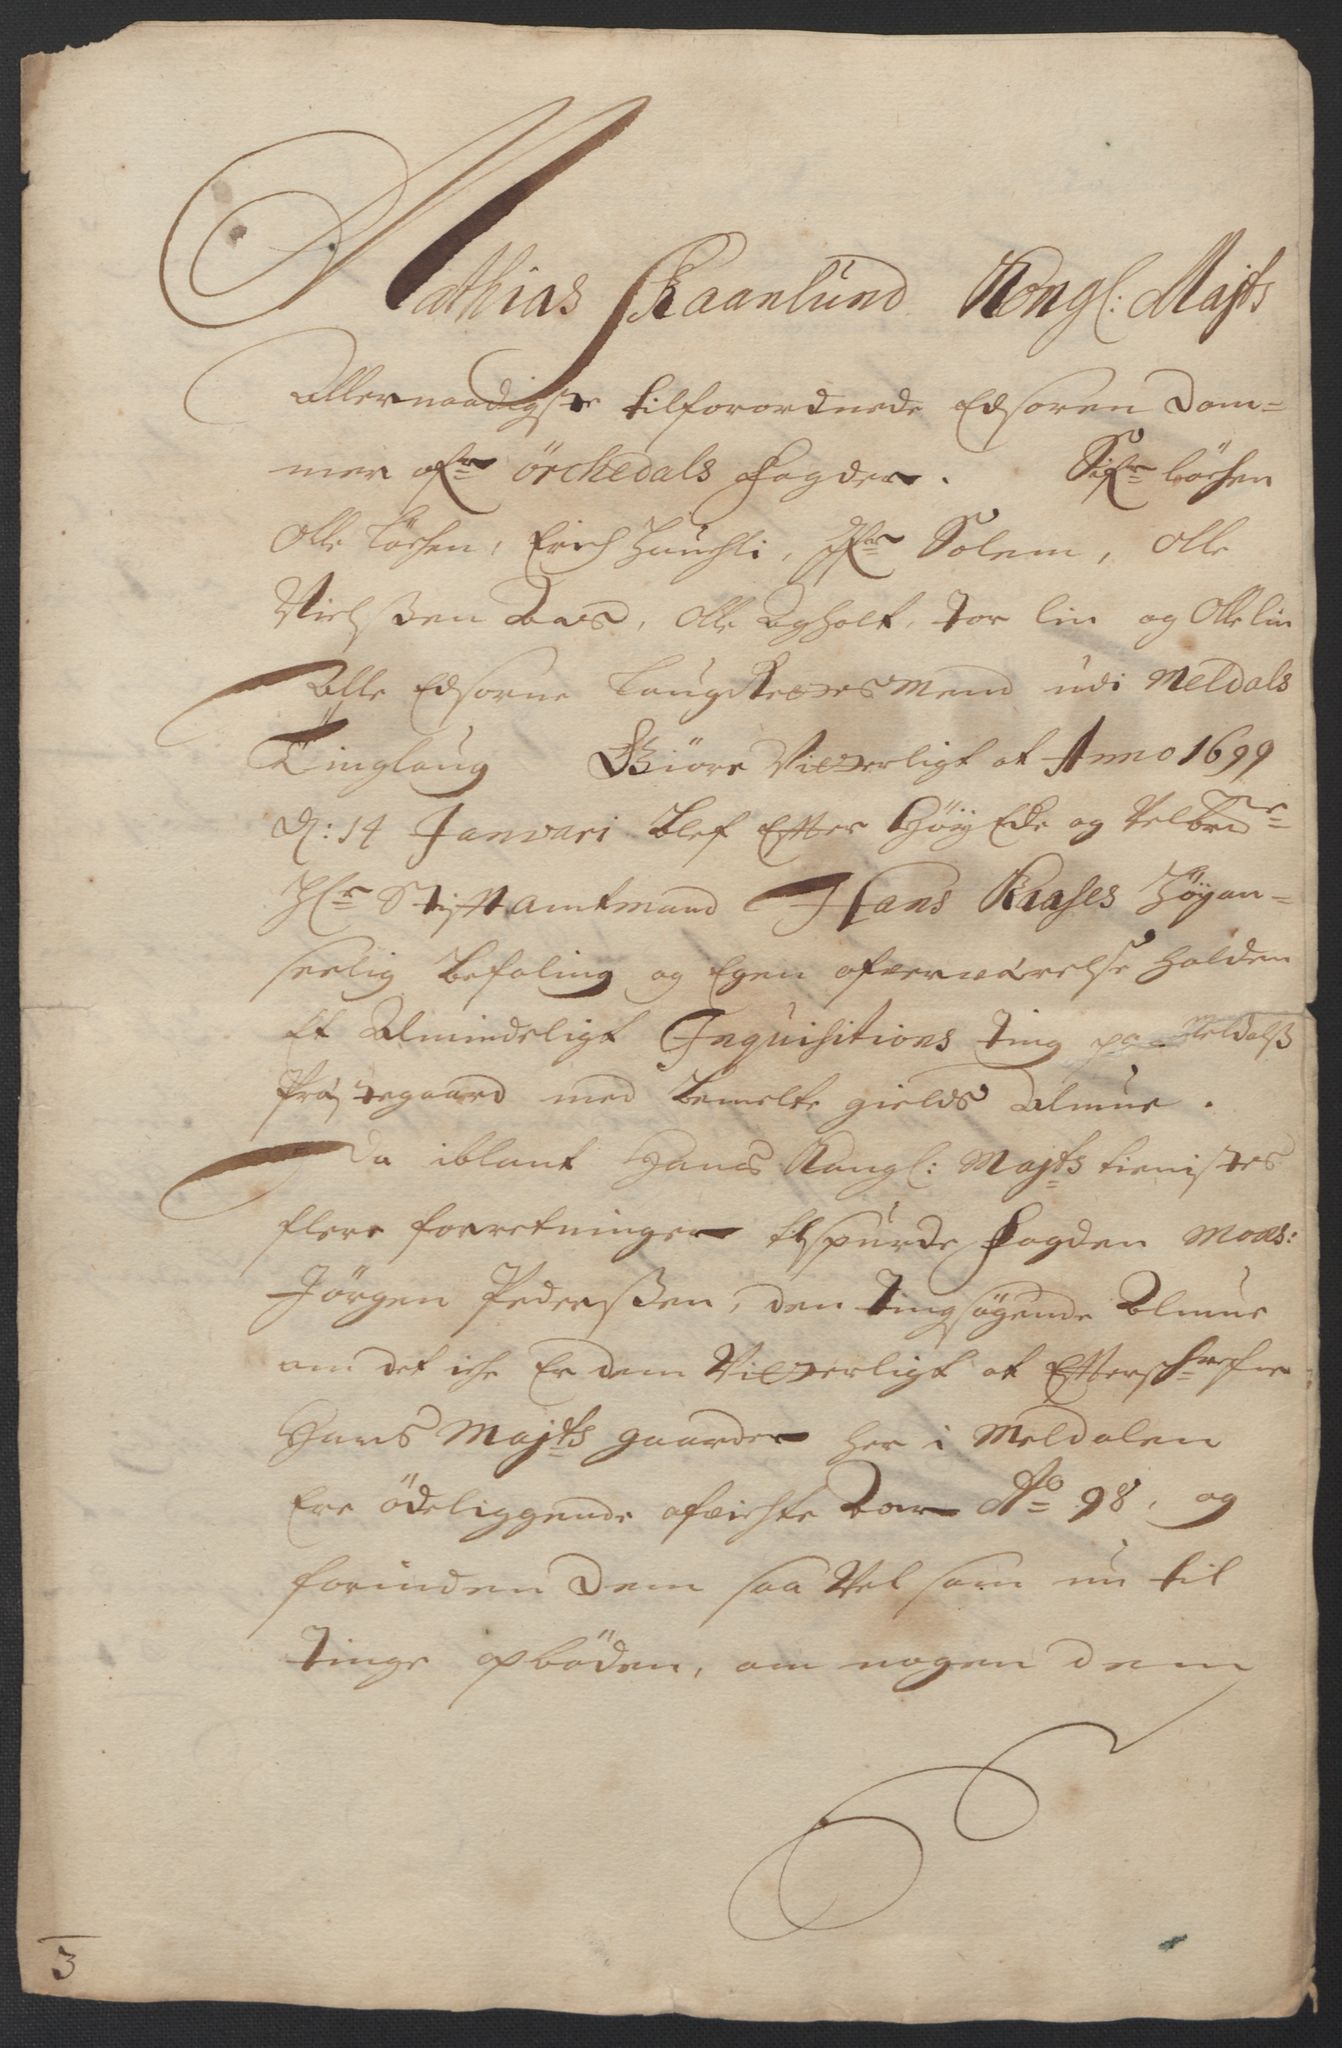 Mathias Skaanlund Kongl: Majts
Allernaadigste tilforordnede Edsoren Dom=
mer ofr Örchedals fogderi. Sifr Löchen
Olle Löchen, Erich Hauchli, Ifr Solem, Olle
Nielsßen Aas, Olle Agholt, Tor lin og Olle lin
Alle Edsorne Laug Rettes Mend udi Meldals
Tinglaug Giöre Vitterligt at Anno 1699
d: 14 Januari blef Effter Höy Ede og Velbrne
Hr Stifftamtmand Hans Kaases Höyan=
seelig Befaling og Egen ofverværelse holden
Et Almindeligt Inquisitions Ting paa Meldalß
Præstegaard med bemelte gields Almue.
Da iblant Hans Kongl: Majts tienistes
flere forretninger tilspurde fogden Mons:
Jörgen Pederßen, den Tingsögende Almue
om det iche Er dem Vitterligt at Efferschrefne
Hans Majts gaarder her i Meldalen
Ere ödeliggende afvichte Aar Ao 98, og
forinden dem saa Vel som nu til
Tinge opböden, om nogen dem
3